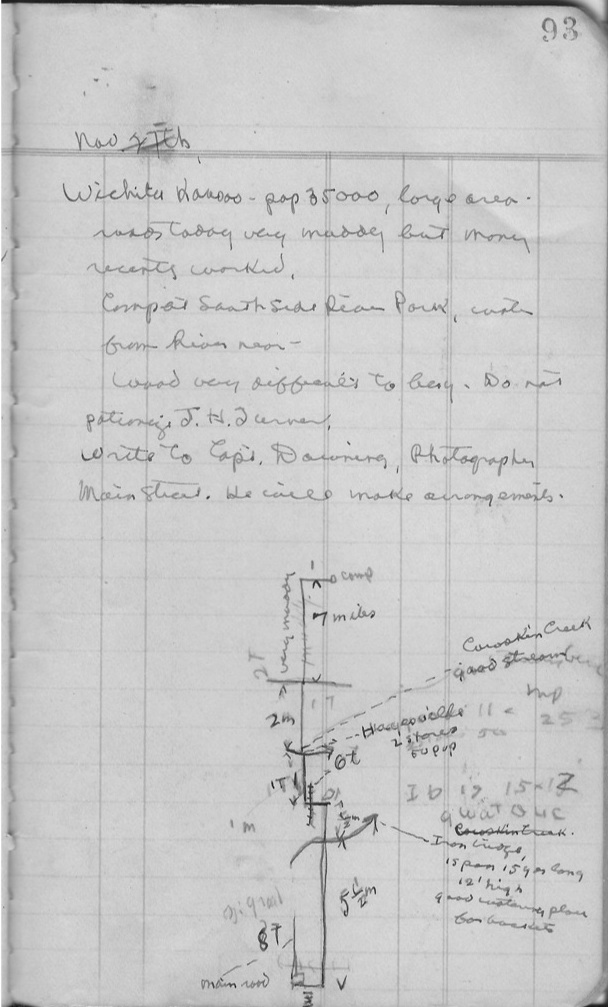 93
Nov
Wichita Kansas - pop 35000, large area.
roads today very muddy but many
recently worked.
Camp at South Side River Park, water
from River near -
Wood very difficult to buy. Do not
J. H. Turner.
Write to Capt. Downing, Photographer
Main Street. He will make arrangements.
camp
7 miles
very muddy
2T
Cowskin Creek
good stream
2m
Haysville
2 stores
50 pop
6t
1T
1m
Cowskin Creek.
Iron bridge,
1 span 15 yds long
12' high
good watering place
for buckets
5 1/2 m
8T
main road